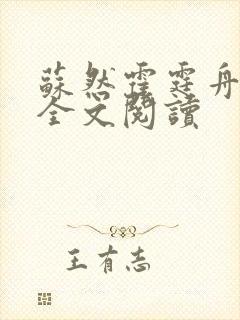 蘇然霍霆舟
全文閱讀
王有志